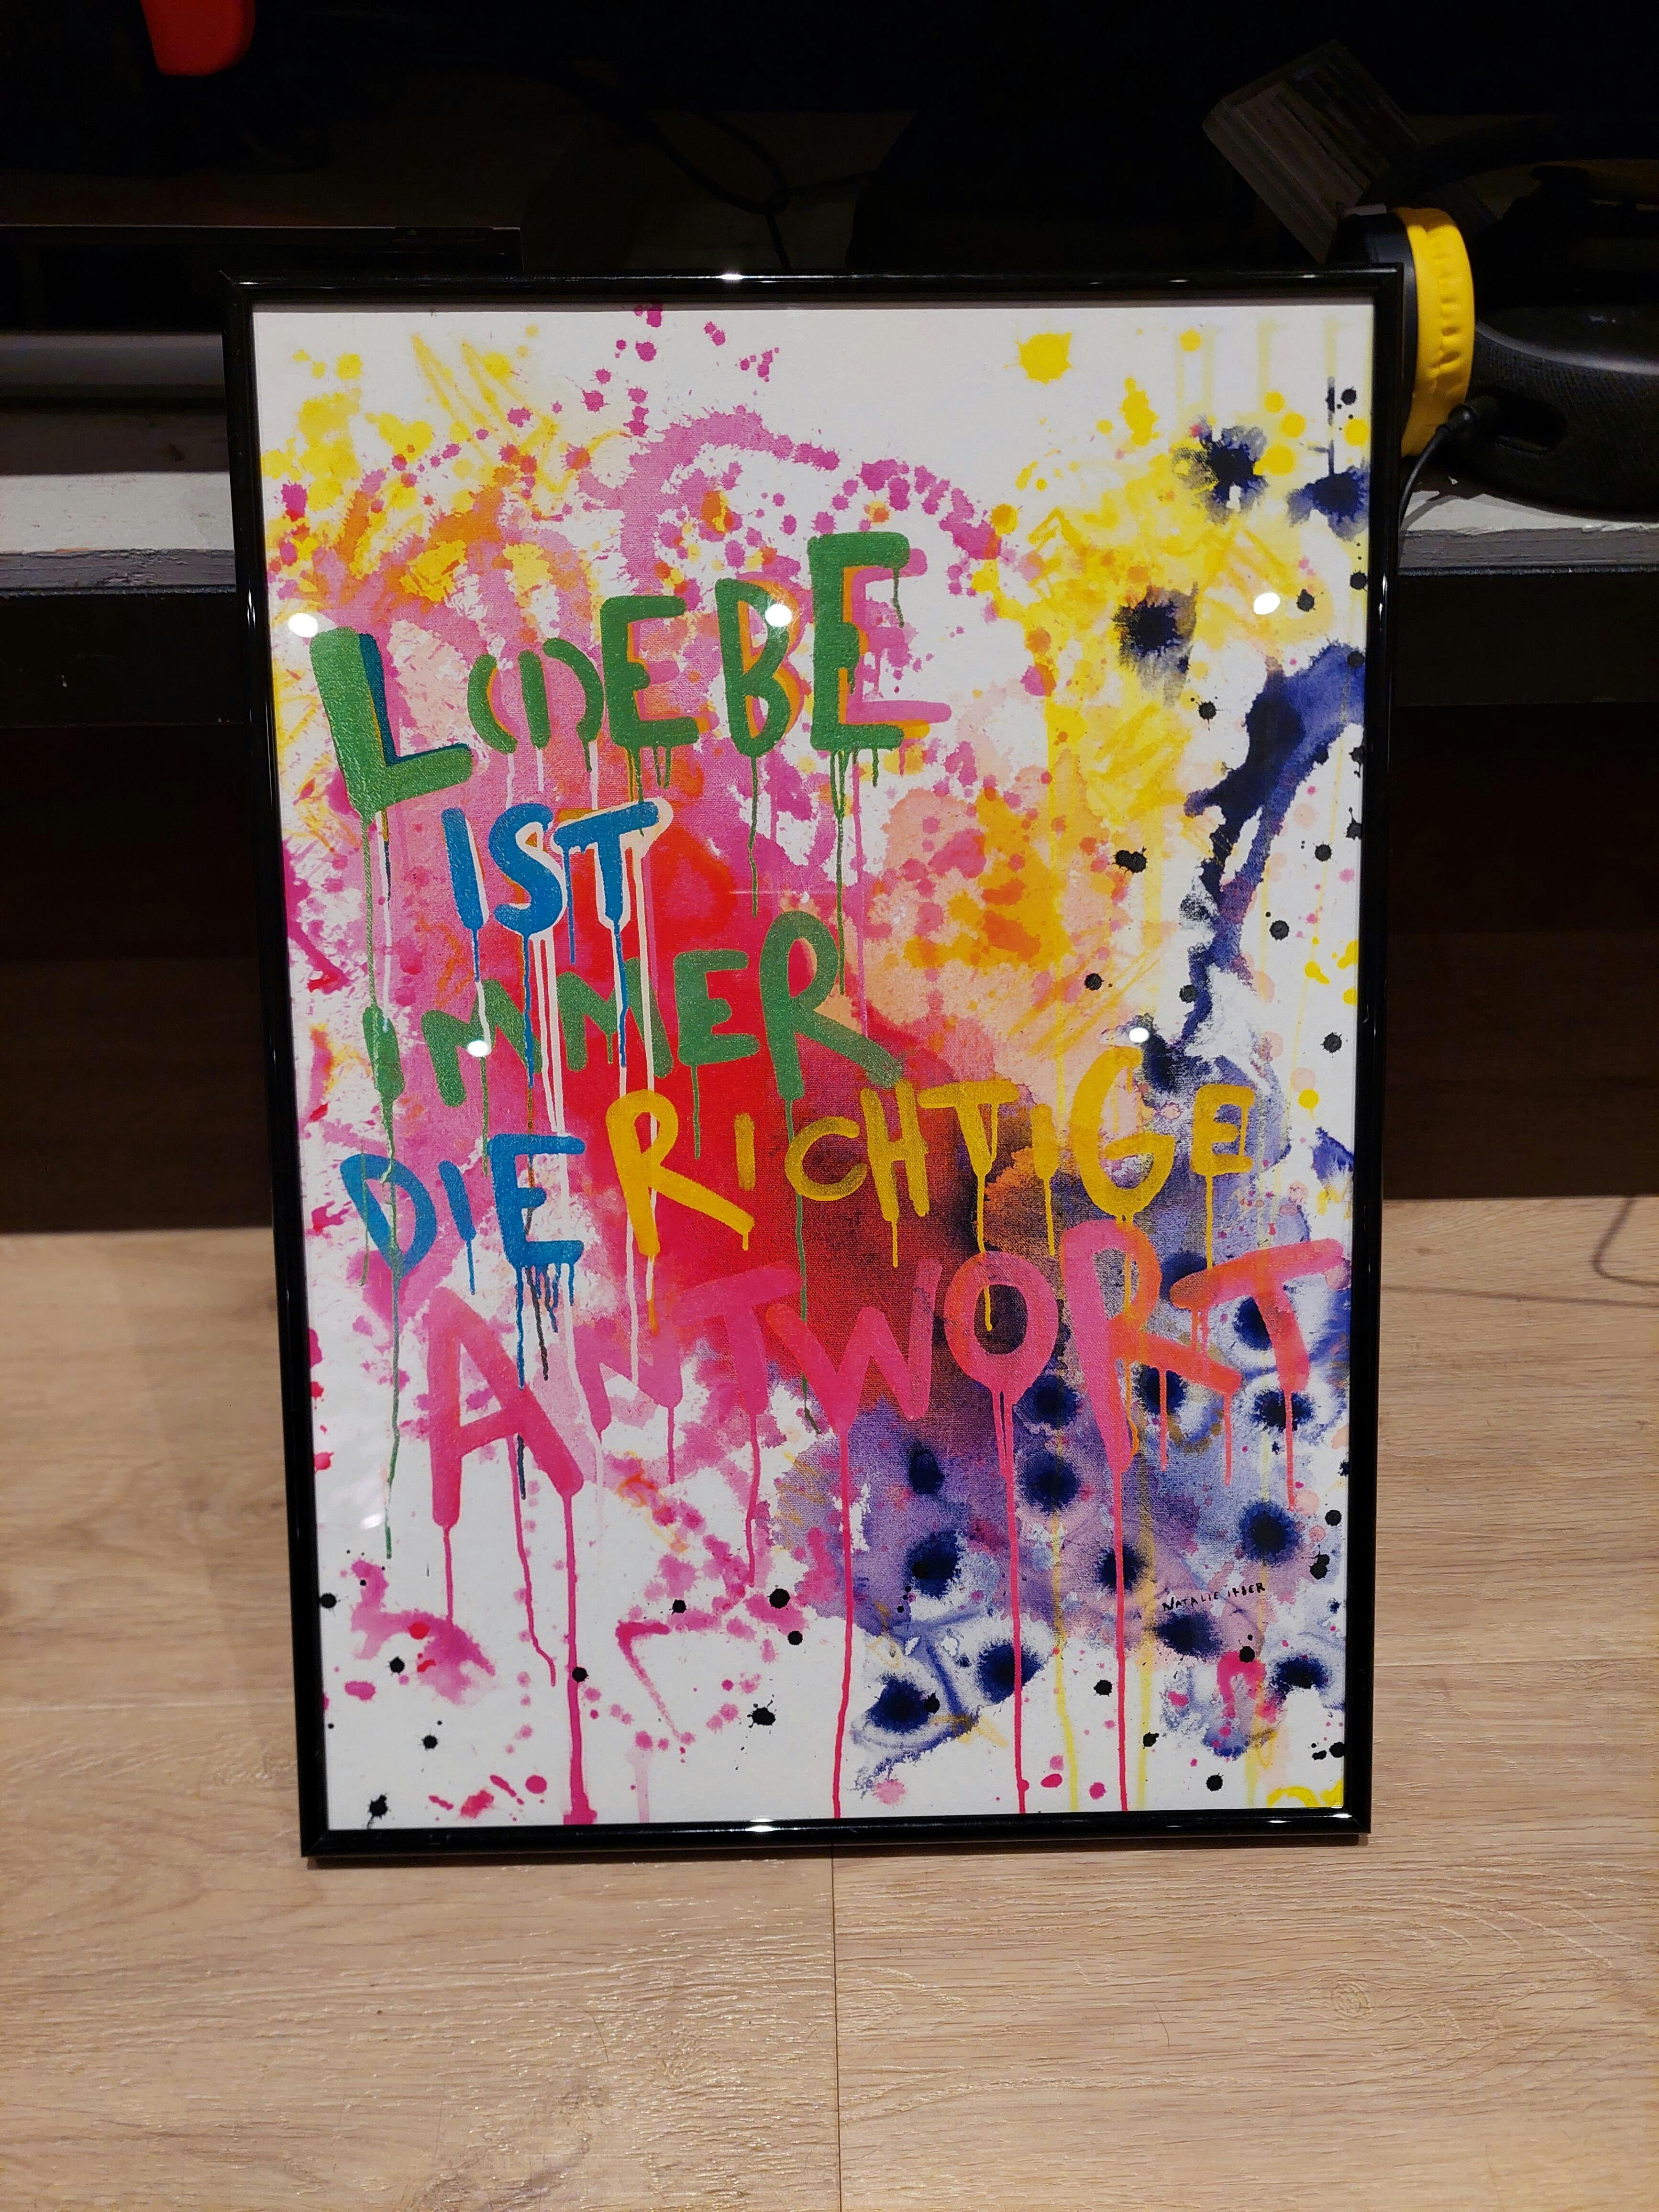 L(I)EBE
IST
IMMER
DIE RICHTIGE
ANTWORT
NATALIE